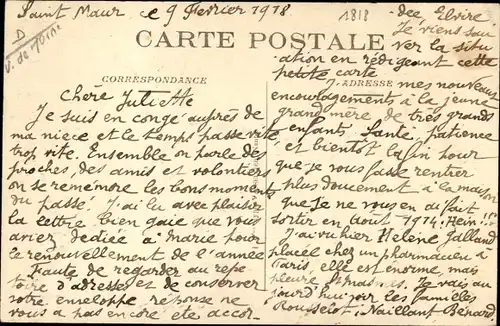 Saint Maur, ce 9 février 1918
1818
D
CARTE POSTALE
CORRESPONDANCE
Chère Juliette
Je suis en congé auprès de
ma nièce et le temps passe vite
trop vite. Ensemble on parle des
proches, des amis et volontiers
on se remémore les bons moments
du passé. J'ai lu avec plaisir
la lettre bien gaie que vous
aviez dédiée à Marie pour
le renouvellement de l'année
Faute de regarder au répe
toire d'adresses et de conserver
votre enveloppe réponse ne
vous a pas encore été accor-
dée, Elvire
Je viens sau
ver la situ
ation en rédigeant cette
petite carte
ADRESSE
mes nouveaux
encouragements à la jeune
grand mère de très grands
enfants. Santé, patience
et bientôt la fin pour
que je vous fasse rentrer
plus doucement à la maison
que je ne vous en ai fait
sortir en Août 1914. Hein!!
J'ai vu hier Helene Galland
placée chez un pharmacien à
Paris, elle est énorme, mais
pleure Je vais au
jourd'hui voir les familles
Rousselot, Naillant Bénard